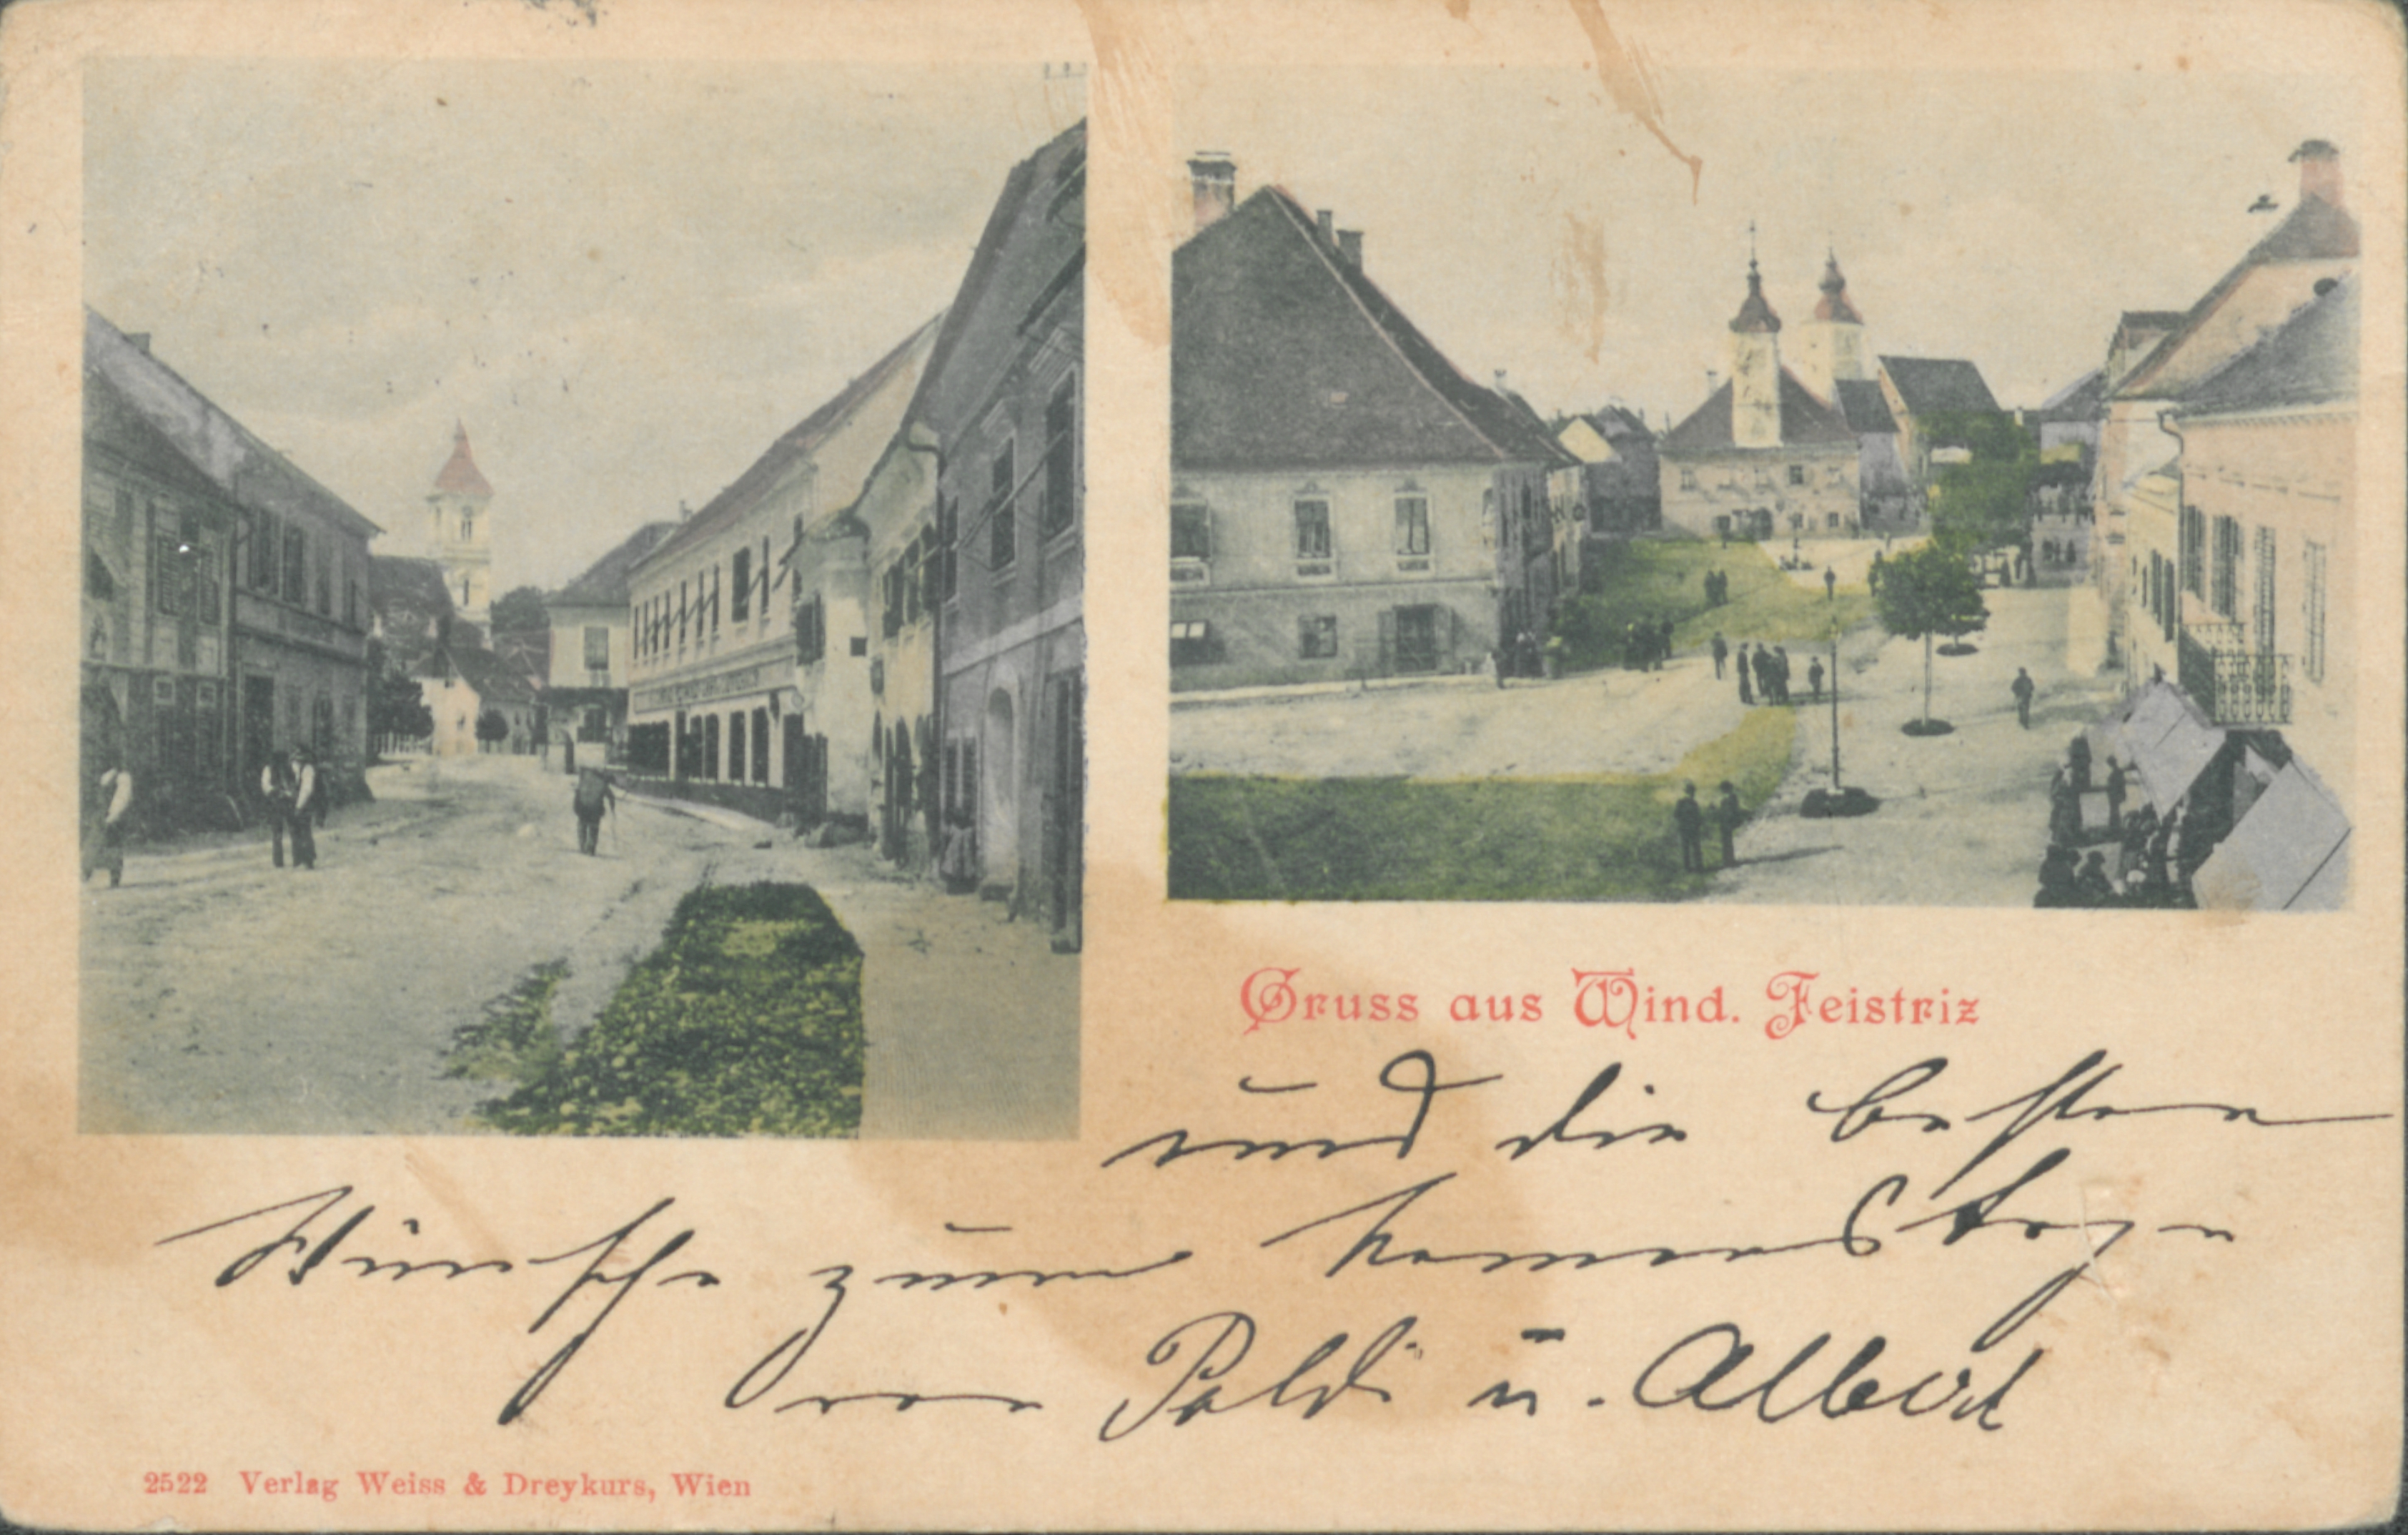 Gruss aus Wind. Feistriz
und die besten
Wünsche zum Namenstage
von Poldi u. Albert
2522 Verlag Weiss & Dreykurs, Wien